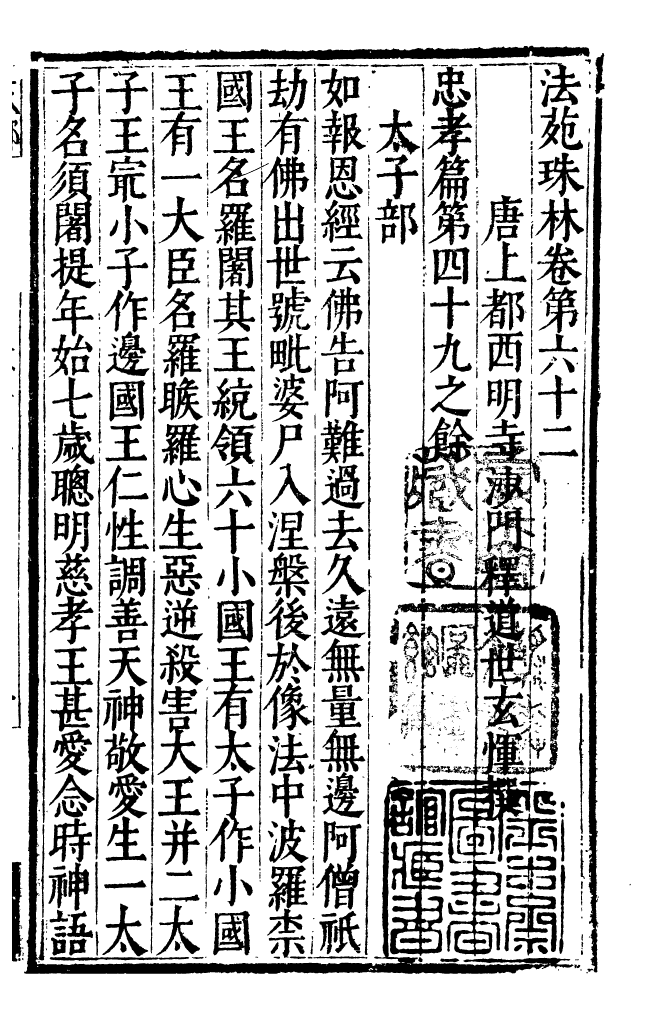 法苑珠林卷第六十二
唐上都西明寺沙門釋道世玄惲撰
忠孝篇第四十九之餘
太子部
如報恩經云佛告阿難過去久遠無量無邊阿僧祇
劫有佛出世號毗婆尸入涅槃後於像法中波羅柰
國王名羅闍其王統領六十小國王有太子作小國
王有一大臣名羅睺羅心生惡逆殺害大王并二太
子王寂小子作邊國王仁性調善天神敬愛生一太
子名須闍提年始七歲聰明慈孝王甚愛念時神語